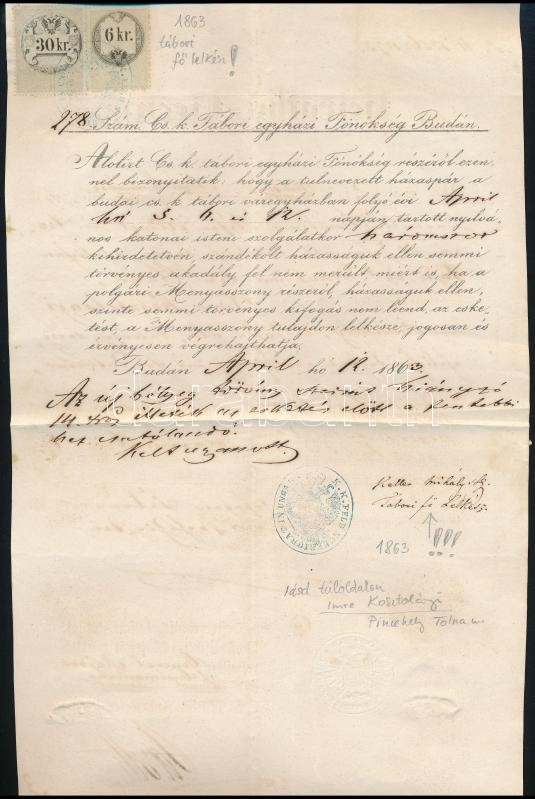 30 kr.
6 kr.
1863
tábori
fő lelkész!
278. Szám. Cs. k. Tábori egyházi Főnökség Budán.
Alolirt Cs. k. tabori egyházi Főnökség részéről ezen-
nel bizonyitatik: hogy a tulnevezett házaspár a
budai cs. k. tabori váregyházban folyó évi April
hó 5. 6. és 12. napján tartott nyilvá-
nos katonai isteni szolgálatkor háromszor
kihirdetetvén, szándékolt házasságuk ellen semmi
törvényes akadály fel nem merült miért is, ha a
polgári Menyasszony részéről, házasságuk ellen,
szinte semmi törvényes kifogás nem leend, az eske-
tést, a Menyasszony tulajdon lelkésze, jogosan és
érvényesen végrehajthatja.
Budán April hó 12. 1863.
Az uj bélyeg törvény szerint hiányzó
14 kros illeték az esketés előtt a fentebbi
hez csatolandó.
Kelt ugyanott.
K. K. FELD SUPERIORAT IN UNGARN
Keller Mihály
Tábori fő Lelkész
1863 !!!
lásd túloldalon
Imre Kosztolányi
Pincehely Tolna m.
darabanth